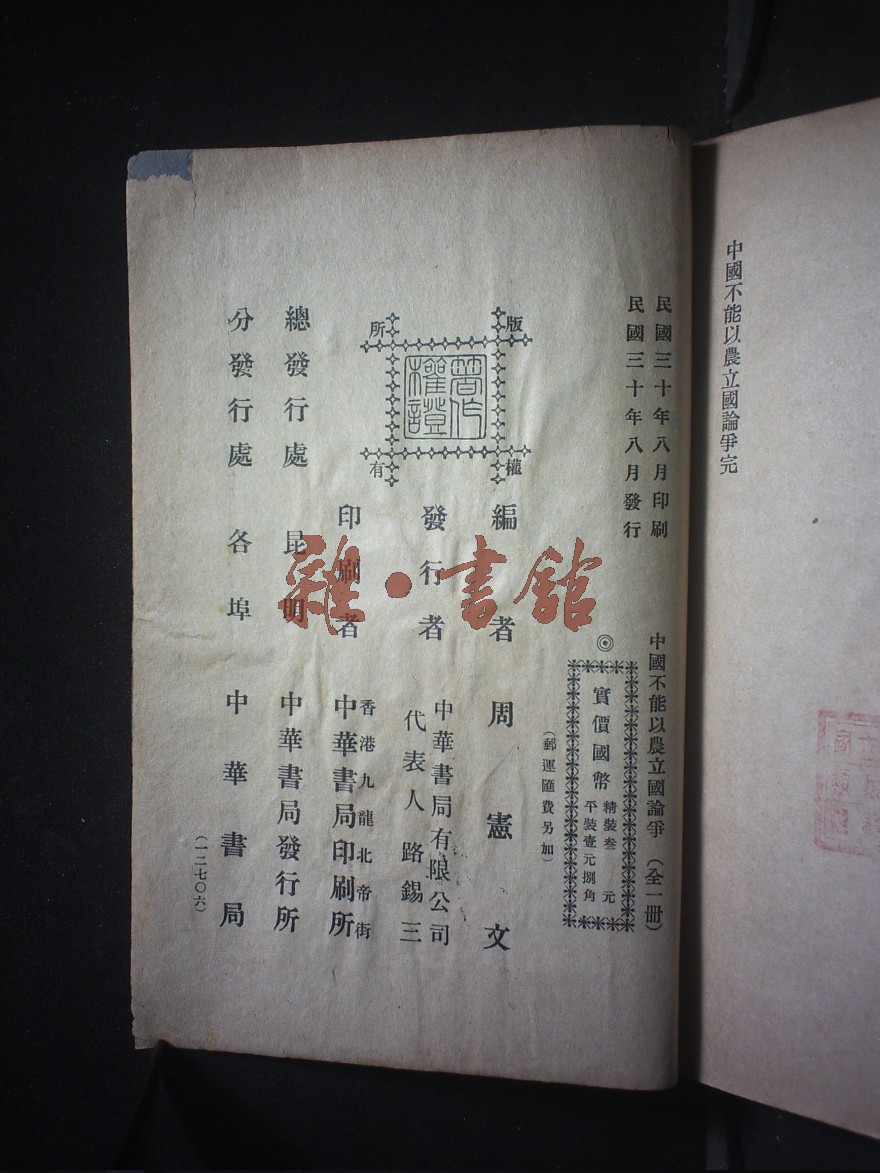 中國不能以農立國論爭完
民國三十年八月印刷
民國三十年八月發行
中國不能以農立國論爭（全一冊）
◎
實價國幣
精裝叁元
平裝壹元捌角
（郵運匯費另加）
版權所有
著作權證
編者 周憲文
發行者 中華書局有限公司
代表人 路錫三
印刷者 香港九龍北帝街
中華書局印刷所
總發行處 昆明 中華書局發行所
分發行處 各埠 中華書局
（一二七〇六）
雜·書館